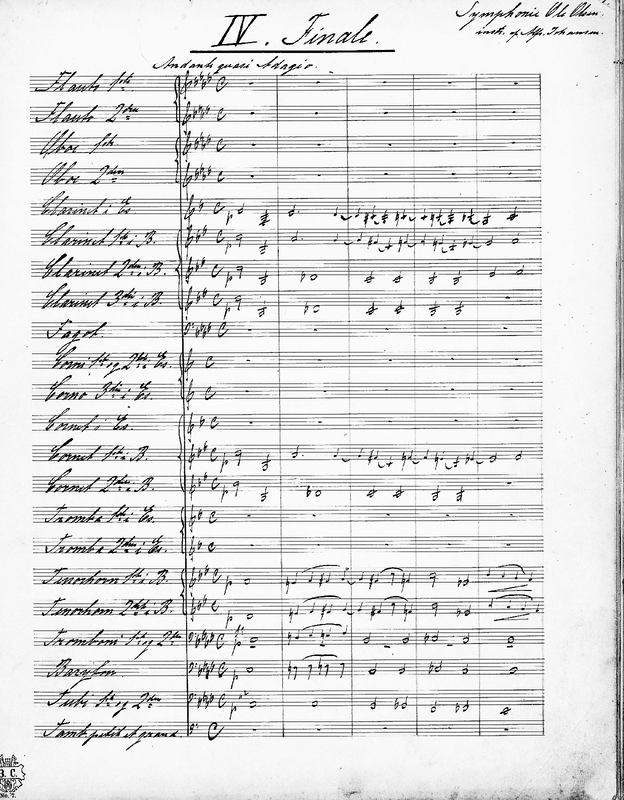 Symphonie Ole Olsen.
instr. af Alfr. Johansen.
IV. Finale.
Andante quasi Adagio.
Flauto 1ste
Flauto 2den
Oboe 1ste
Oboe 2den
Clarinet i Es.
Clarinet 1ste i B.
Clarinet 2den i B.
Clarinet 3die i B.
Fagot.
Corni 1ste og 2den i Es.
Corno 3die i Es.
Cornet i Es.
Cornet 1ste i B.
Cornet 2den i B.
Tromba 1ste i Es.
Tromba 2den i Es.
Tenorhorn 1ste i B.
Tenorhorn 2det i B.
Tromboni 1ste og 2den
Baryton
Tuba 1ste og 2den
Tamb. petit et grand
B. C.